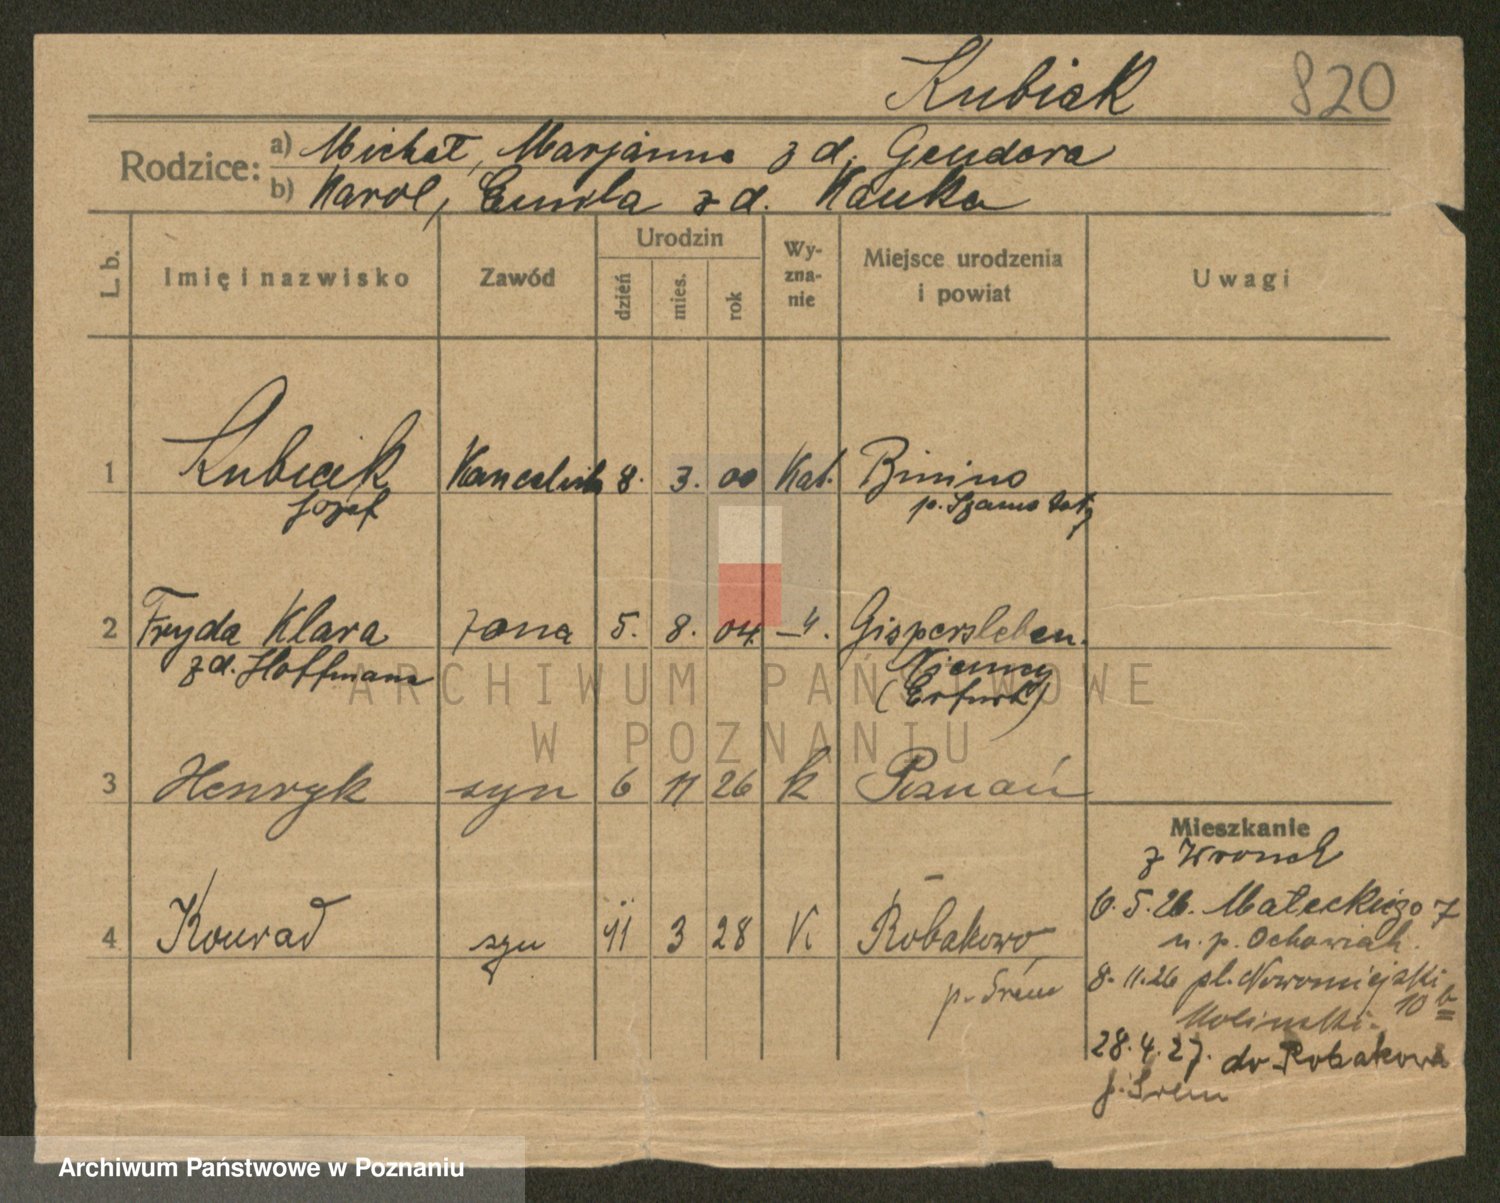 Kubiak 820
Rodzice: a) Michał, Marjanna z d. Gendera
b) Karol, Emila z d. Kauka
L. b. Imię i nazwisko Zawód Urodzin dzień mies. rok Wy-zna-nie Miejsce urodzenia i powiat Uwagi
1 Kubiak Kancelist 8. 3. 00 Kat. Binino
Józef p. Szamotuły
2 Fryda Klara żona 5. 8. 04 –"–. Gispersleben.
z d. Hoffmann Niemcy
(Erfurt)
3 Henryk syn 6 11 26 k Poznań
4 Konrad syn 11 3 28 K Robakowo
p. Śrem
Mieszkanie
z Wronek
6. 5. 26. Małeckiego 7
u. p. Ochowiak.
8. 11. 26 pl. Nowomiejski
10 b
Molinski.
28. 4. 27. do Robakowa
p. Śrem
ARCHIWUM PAŃSTWOWE
W POZNANIU
Archiwum Państwowe w Poznaniu